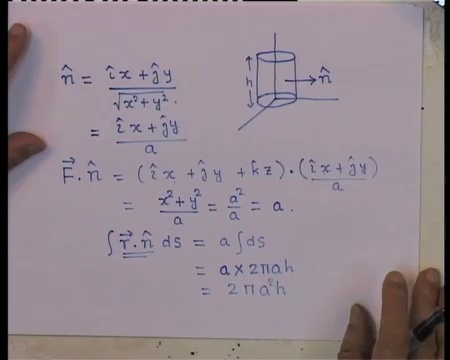 n̂ = (î x + ĵ y) / √(x² + y²).
= (î x + ĵ y) / a
h
n̂
F⃗ . n̂ = (î x + ĵ y + k̂ z) . ((î x + ĵ y) / a)
= (x² + y²) / a = a² / a = a .
∫ r⃗ . n̂ ds = a ∫ ds
= a × 2πah
= 2πa²h